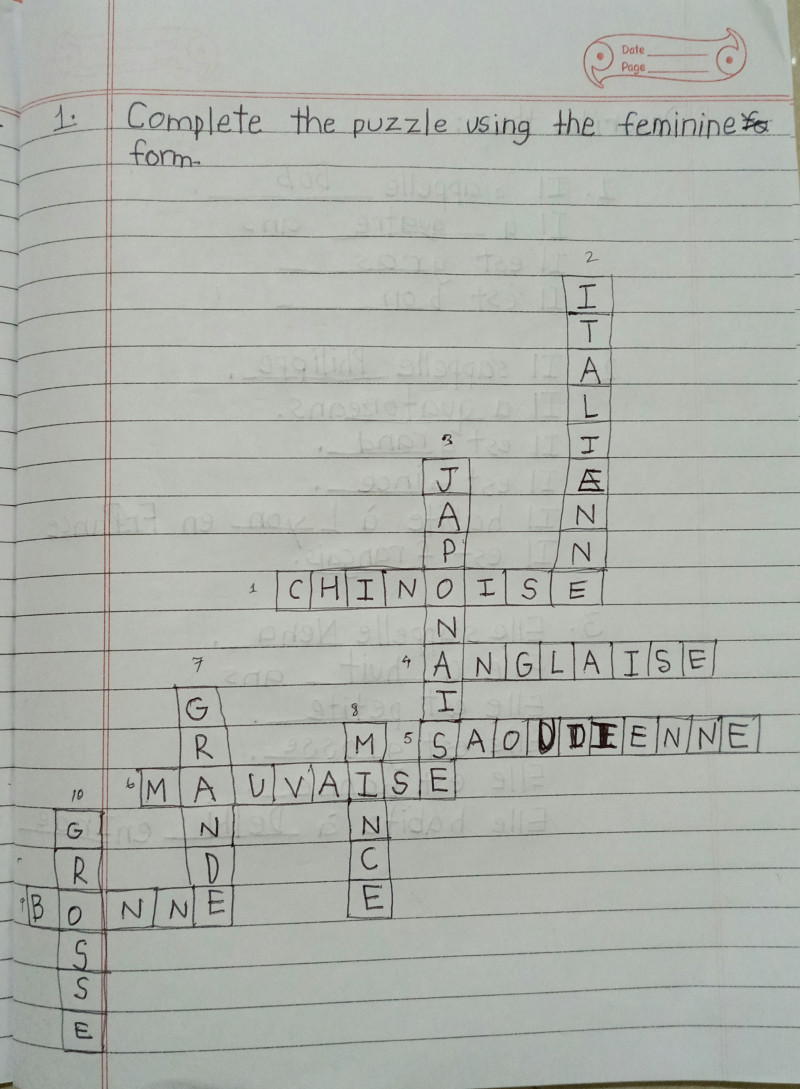 Date
Page
1. Complete the puzzle using the feminine
form.
2
ITALIENNE
3
JAPONAISE
1 CHINOISE
4 ANGLAISE
7
GRANDE
8
MINCE
5 SAOUDIENNE
6 MAUVAISE
10
GROSSE
9 BONNE